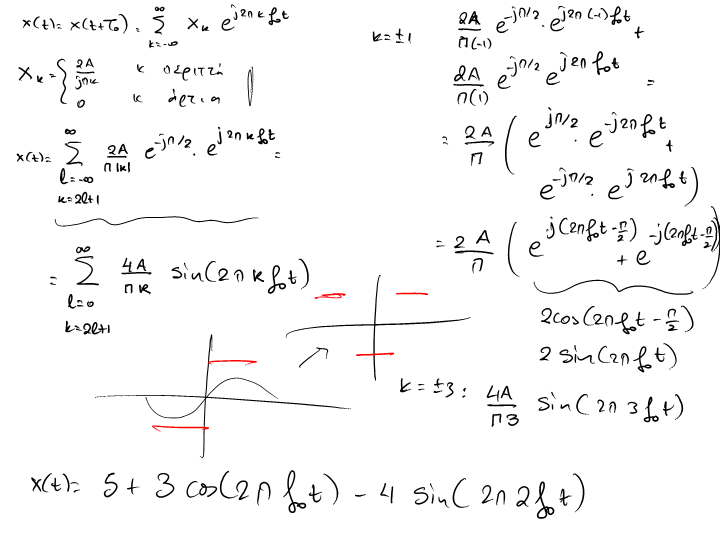 x(t) = x(t+T₀) = ∑_{k=-∞}^{∞} X_k e^{j2πkf₀t}
X_k = { 2A/jπk   κ περιττά
0   κ άρτια
x(t) = ∑_{l=-∞, k=2l+1}^{∞} 2A/π|k| e^{-jπ/2} · e^{j2πkf₀t} =
= ∑_{l=0, k=2l+1}^{∞} 4A/πk sin(2πkf₀t)
k = ±1   2A/π(-1) e^{-jπ/2} · e^{j2π(-1)f₀t} +
2A/π(1) e^{-jπ/2} e^{j2πf₀t} =
= 2A/π ( e^{jπ/2} · e^{-j2πf₀t} +
e^{-jπ/2} · e^{j2πf₀t} )
= 2A/π ( e^{j(2πf₀t-π/2)} + e^{-j(2πf₀t-π/2)} )
2cos(2πf₀t - π/2)
2 sin(2πf₀t)
k = ±3 : 4A/π3 sin(2π3f₀t)
x(t) = 5 + 3 cos(2πf₀t) - 4 sin(2π2f₀t)